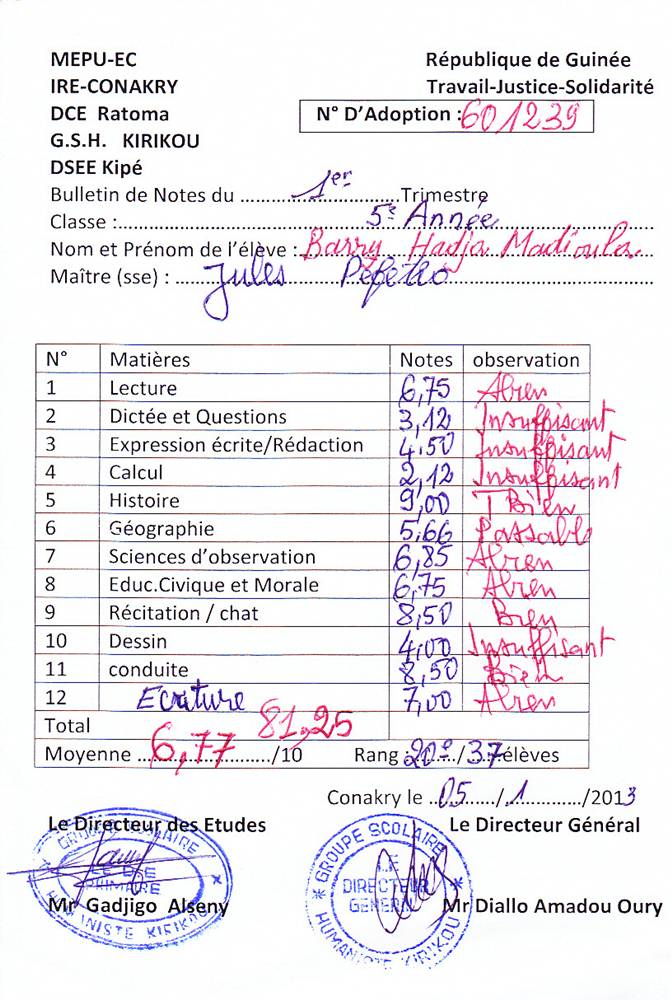 MEPU-EC République de Guinée
IRE-CONAKRY Travail-Justice-Solidarité
DCE Ratoma N° D'Adoption : 601239
G.S.H. KIRIKOU
DSEE Kipé
Bulletin de Notes du ..............1er..............Trimestre
Classe :..............5e Année..............
Nom et Prénom de l'élève : Barry Hadja Madioula
Maître (sse) : Jules
N° Matières Notes observation
1 Lecture 6,75 ABien
2 Dictée et Questions 3,12 Insuffisant
3 Expression écrite/Rédaction 4,50 Insuffisant
4 Calcul 2,12 Insuffisant
5 Histoire 9,00 TBien
6 Géographie 5,66 Passable
7 Sciences d'observation 6,85 ABien
8 Educ.Civique et Morale 6,75 ABien
9 Récitation / chat 8,50 Bien
10 Dessin 4,00 Insuffisant
11 conduite 8,50 Bien
12 Ecriture 7,00 ABien
Total 81,25
Moyenne ..6,77....../10 Rang :20e../37..élèves
Conakry le ..05....../..1........../2013
Le Directeur des Etudes Le Directeur Général
GROUPE SCOLAIRE
PRIMAIRE
HUMANISTE KIRIKOU
GROUPE SCOLAIRE
LE
DIRECTEUR
GENERAL
HUMANISTE KIRIKOU
Mr Gadjigo Alseny Mr Diallo Amadou Oury